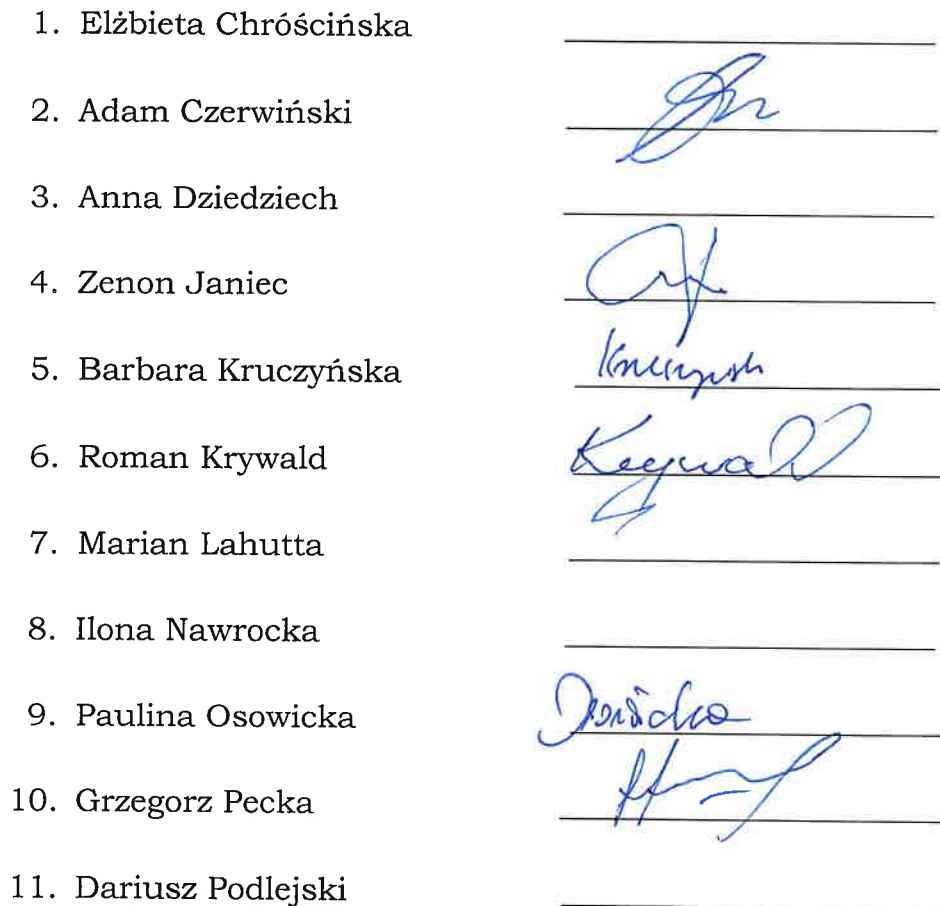 1. Elżbieta Chróścińska
2. Adam Czerwiński
3. Anna Dziedziech
4. Zenon Janiec
5. Barbara Kruczyńska
6. Roman Krywald
Krywald
7. Marian Lahutta
8. Ilona Nawrocka
9. Paulina Osowicka
10. Grzegorz Pecka
11. Dariusz Podlejski